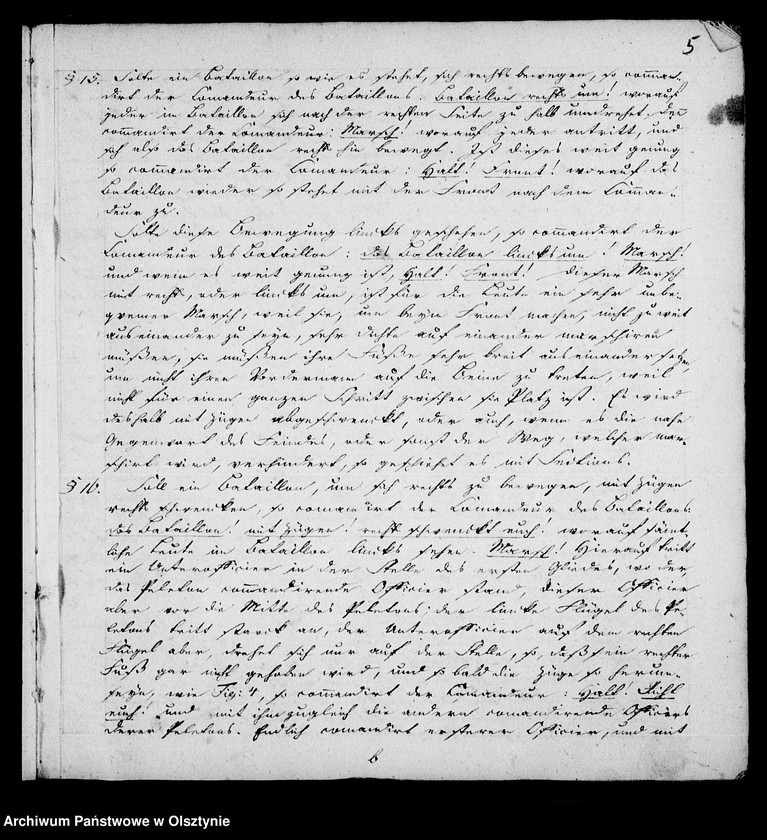 5
§ 15. Solte ein Bataillon so wie es stehet, sich rechts bewegen, so comman-
dirt der Comandeur des Bataillons: Bataillon rechts um! worauf
jeder im Bataillon sich nach der rechten Seite zu halb umdrehet, denn
commandirt der Comandeur: Marsch! worauf jeder antritt, und
sich also das Bataillon rechts hin bewegt. Ist dieses weit genung
so commandirt der Comandeur: Halt! Front! worauf das
Bataillon wieder so stehet mit der Front nach dem Comman-
deur zu.
Solte diese Bewegung lincks geschehen, so commandirt der
Comandeur des Bataillons: das Bataillon lincks um! Marsch!
und wenn es weit genung ist, Halt! Front! Dieser Marsch
mit rechts, oder lincks um, ist für die Leute ein sehr unbe-
qvemer Marsch, weil sie, um beym Front machen, nicht zu weit
auseinander zu seyn, sehr dichte auf einander marschiren
müssen, sie müssen ihre Füße sehr breit auseinander setzen,
um nicht ihren Vordermann auf die Beine zu treten, weil
nicht für einen ganzen Schritt zwischen sie Platz ist. Es wird
deshalb mit Zügen abgeschwenckt, oder auch, wenn es die nahe
Gegenwart des Feindes, oder sonst der Weg, welcher mar-
schirt wird, verhindert, so geschiehet es mit Sections.
§ 16. Soll ein Bataillon, um sich rechts zu bewegen, mit Zügen
rechts schwencken, so comandirt der Comandeur des Bataillons:
das Bataillon! mit Zügen! rechts schwenckt euch! worauf sämt-
liche Leute im Bataillon lincks sehen. Marsch! Hierauf tritt
ein Unterofficier in der Stelle des ersten Gliedes, wo der
das Peleton commandirende Officier stand, dieser Officier
aber vor die Mitte des Peletons; der lincke Flügel des Pe-
letons tritt starck an, der Unterofficier auf dem rechten
Flügel aber, drehet sich nur auf der Stelle, so, daß sein rechter
Fuß gar nicht gehoben wird, und so bald die Züge so herum
seyn, wie Fig: 4, so commandirt der Comandeur: Halt! Richt
euch! und mit ihm zugleich die andern comandirende Officiers
derer Peletons. Endlich comandirt ersterer Officier, und mit
Archiwum Państwowe w Olsztynie